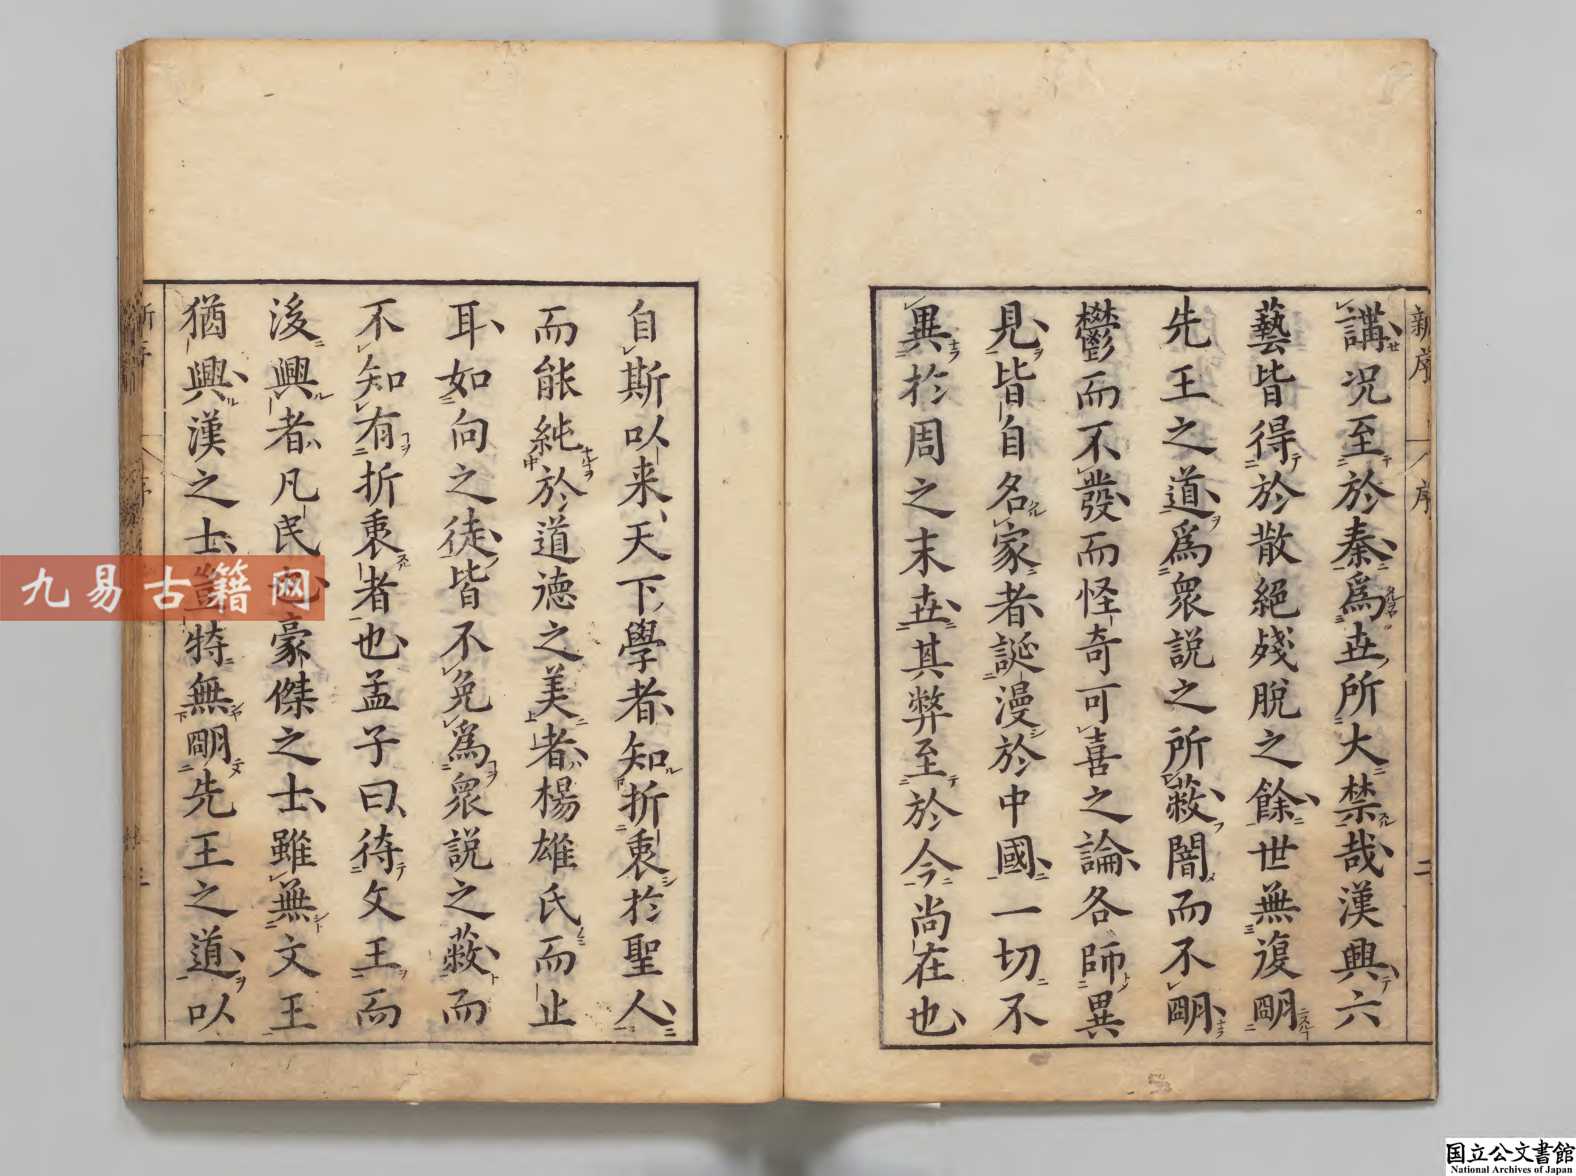 新序 序 二
講況至於秦爲丗所大禁哉漢興六
藝皆得於散絕殘脫之餘世無復明
先王之道爲衆說之所蔽闇而不明
鬱而不發而怪奇可喜之論各師異
見皆自名家者誕漫於中國一切不
異於周之末丗其弊至於今尚在也
自斯以来天下學者知折衷於聖人
而能純於道德之美者楊雄氏而止
耳如向之徒皆不免爲衆說之蔽而
不知有折衷者也孟子曰待文王而
後興者凡民也豪傑之士雖無文王
猶興漢之士豈特無明先王之道以
九易古籍网
国立公文書館
National Archives of Japan